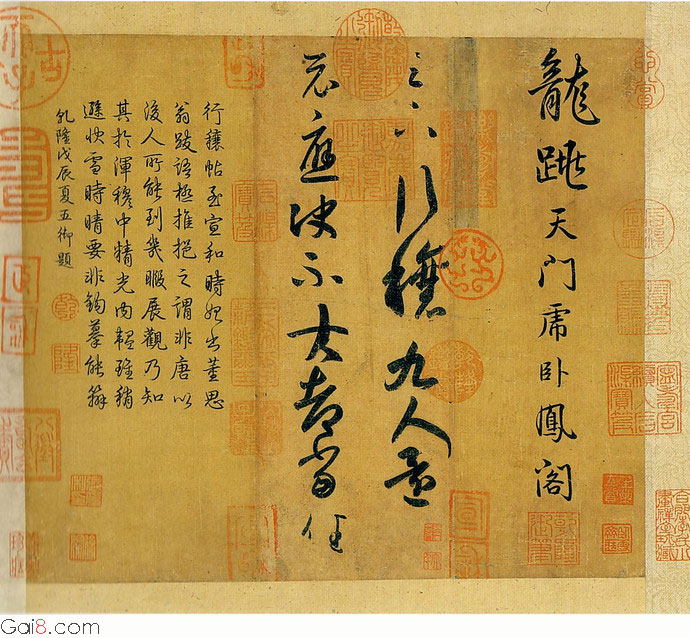 龍跳天門虎卧鳳閣
足下行穰九人還
示應決不大都當任
行穰帖至宣和時始出董思
翁跋語極推挹之謂非唐以
後人所能到幾暇展觀乃知
其於渾穆中精光內韞雖稍
遜快雪時晴要非鉤摹能辦
乾隆戊辰夏五御題
Gai8.com